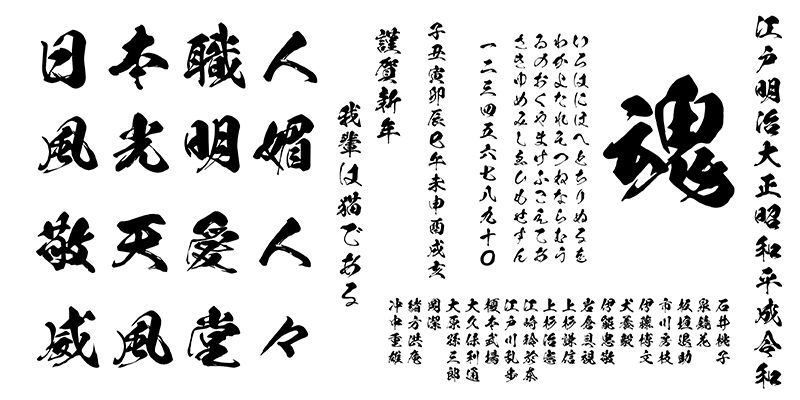 江戸明治大正昭和平成令和
魂
いろはにほへとちりぬるを
わかよたれそつねならむう
ゐのおくやまけふこえてあ
さきゆめみしゑひもせすん
一二三四五六七八九十〇
子丑寅卯辰巳午未申酉戌亥
謹賀新年
我輩は猫である
石井桃子
泉鏡花
板垣退助
市川房枝
伊藤博文
犬養毅
伊能忠敬
岩倉具視
上杉謙信
上杉治憲
江崎玲於奈
江戸川乱歩
榎本武揚
大久保利通
大原孫三郎
岡潔
緒方洪庵
沖中重雄
日本職人
風光明媚
敬天愛人
威風堂々